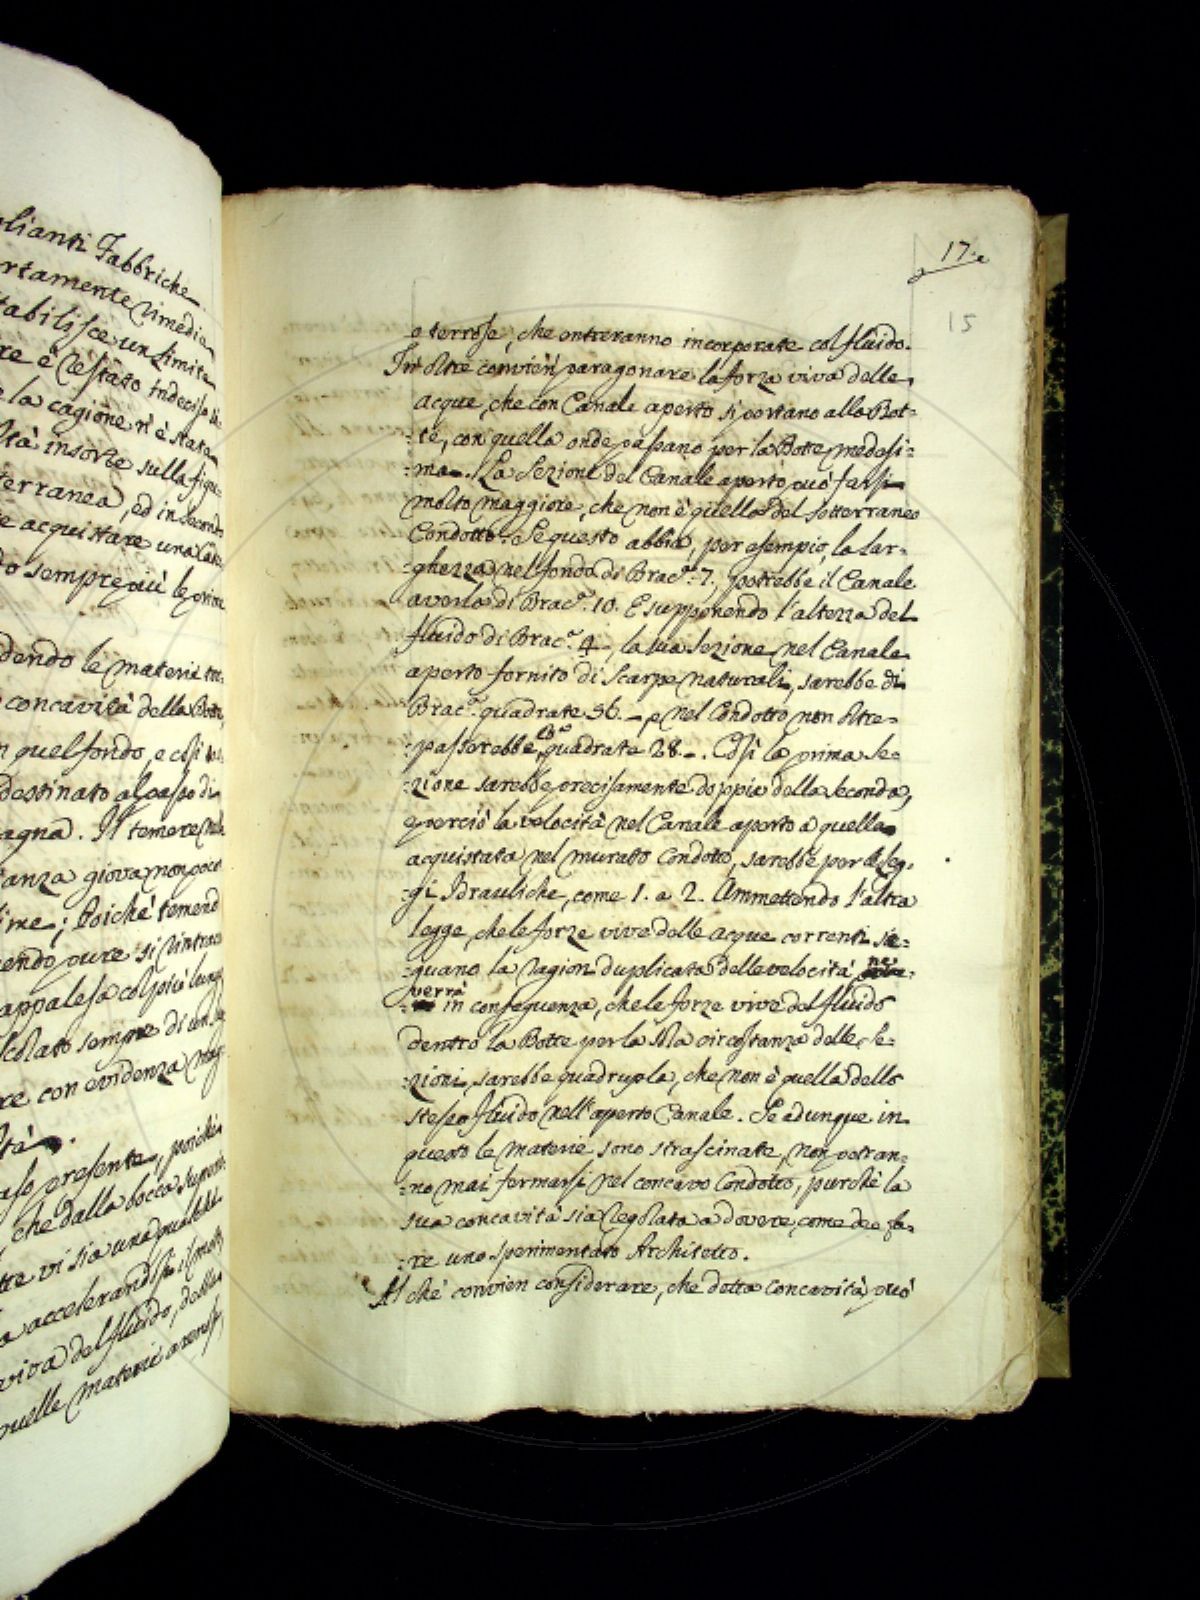 glianti Fabbriche
ertamente rimedia
stabilisce un limite
re è restato indeciso
e la cagione n'è stata
ltà insorte sulla figu:
terranea, ed in secondo
e acquistare una
do sempre più le prime
dendo le materie
concavità della Botte
n quel fondo, e così
destinato al passo di
agna. Il temere
anza giova non poco
ime; Poichè temend
endo pure si rintrac
appalesa col più lung
colato sempre di
re con evidenza mag
ltà.
aso presente, poichè
che dalla bocca
tre vi sia una
a accelerandosi il moto
viva del fluido, delle
quelle materie arenose,
17.
15
o terrose, che entreranno incorporate col fluido.
In oltre convien paragonare la forza viva delle
acque, che con Canale aperto si portano alla Bot:
:te, con quella onde passano per la Botte medesi:
:ma. La Sezione del Canale aperto può farsi
molto maggiore, che non è quella del sotterraneo
Condotto. Se questo abbia, per esempio, la lar:
:ghezza nel fondo di Brac.ª 7. potrebbe il Canale
averla di Brac.ª 10. E supponendo l'altezza del
fluido di Brac.ª 4, la sua Sezione nel Canale
aperto fornito di Scarpe naturali, sarebbe di
Brac.ª quadrate 56. e nel Condotto non oltre:
:passerebbe quadrate 28. Così la prima Se:
:zione sarebbe precisamente doppia della seconda,
e perciò la velocità nel Canale aperto a quella
acquistata nel murato Condotto, sarebbe per le leg:
:gi Idrauliche, come 1. a 2. Ammettendo l'altra
legge, che le forze vive delle acque correnti se:
:guano la ragion duplicata delle velocità ne
verrà in conseguenza, che le forze vive del fluido
dentro la Botte per la sola circostanza delle Se:
:zioni, sarebbe quadrupla, che non è quella dello
stesso fluido nell'aperto Canale. Se adunque in
questo le materie sono strascinate, non potran:
:no mai fermarsi nel concavo Condotto, purchè la
sua concavità sia regolata a dovere, come dee fa:
:re uno sperimentato Architetto.
Al che convien considerare, che detta concavità può